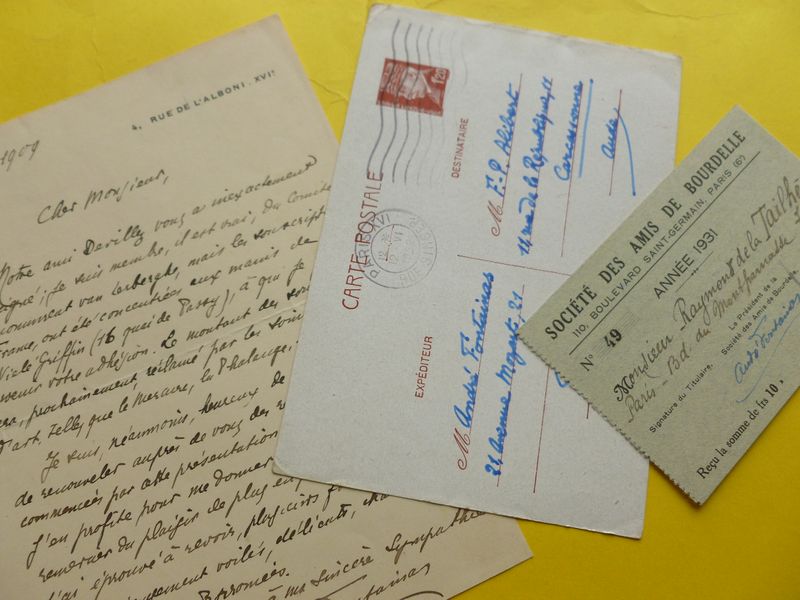 4, RUE DE L'ALBONI - XVIᵉ
1909
Cher Monsieur,
Notre ami Davilley vous a inexactement
; je suis membre, il est vrai, du Comité
monument van Lerberghe, mais les
France, ont été concentrées aux mains de
Vielé-Griffin (16 quai de Passy), à qui je
votre adhésion. Le montant des
sera, prochainement, réclamé par les soins
d'art, telles que le Mercure, la Phalange,
Je suis, néanmoins, heureux de
de renouveler auprès de vous des
commencées par cette présentation
J'en profite pour me donner
remercier du plaisir de plus en
j'ai éprouvé à revoir, plusieurs
voilés, délicats,
Borromées.
ma sincère sympathie
CARTE POSTALE
1F20
PARIS XVI
12 VI
DESTINATAIRE
M F. P. Alibert
11 rue de la République, 11
Carcassonne
Aude
EXPÉDITEUR
M André Fontainas
21, Avenue Mozart, 21
SOCIÉTÉ DES AMIS DE BOURDELLE
110, BOULEVARD SAINT-GERMAIN, PARIS (6ᵉ)
ANNÉE 1931
N° 49
Monsieur Raymond de la Tailhède
Paris - Bd. du Montparnasse
Le Président de la
Société des Amis de Bourdelle
André Fontainas
Signature du Titulaire,
Reçu la somme de frs 10